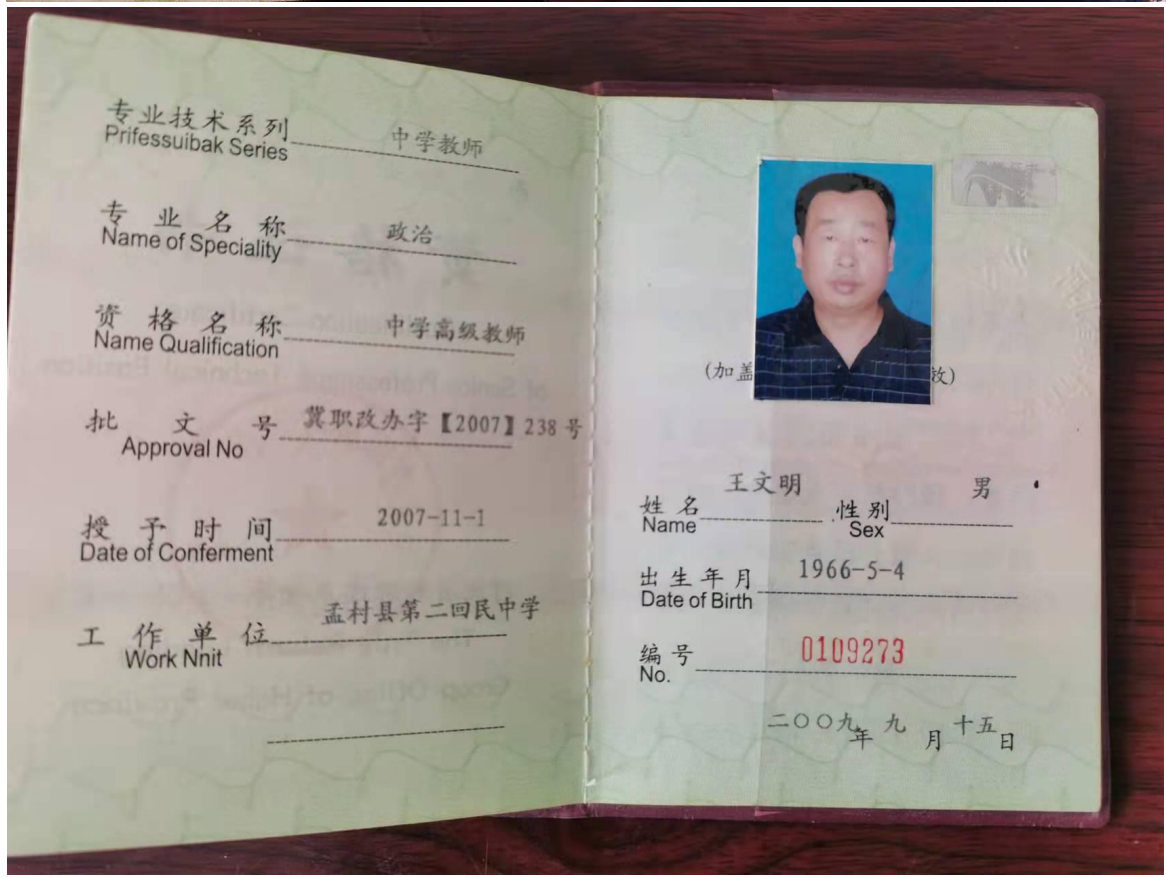 专业技术系列 中学教师
Prifessuibak Series
专业名称 政治
Name of Speciality
资格名称 中学高级教师
Name Qualification
批文号 冀职改办字【2007】238号
Approval No
授予时间 2007-11-1
Date of Conferment
工作单位 孟村县第二回民中学
Work Nnit
(加盖
效)
姓名 王文明 性别 男
Name Sex
出生年月 1966-5-4
Date of Birth
编号 0109273
No.
二〇〇九年九月十五日